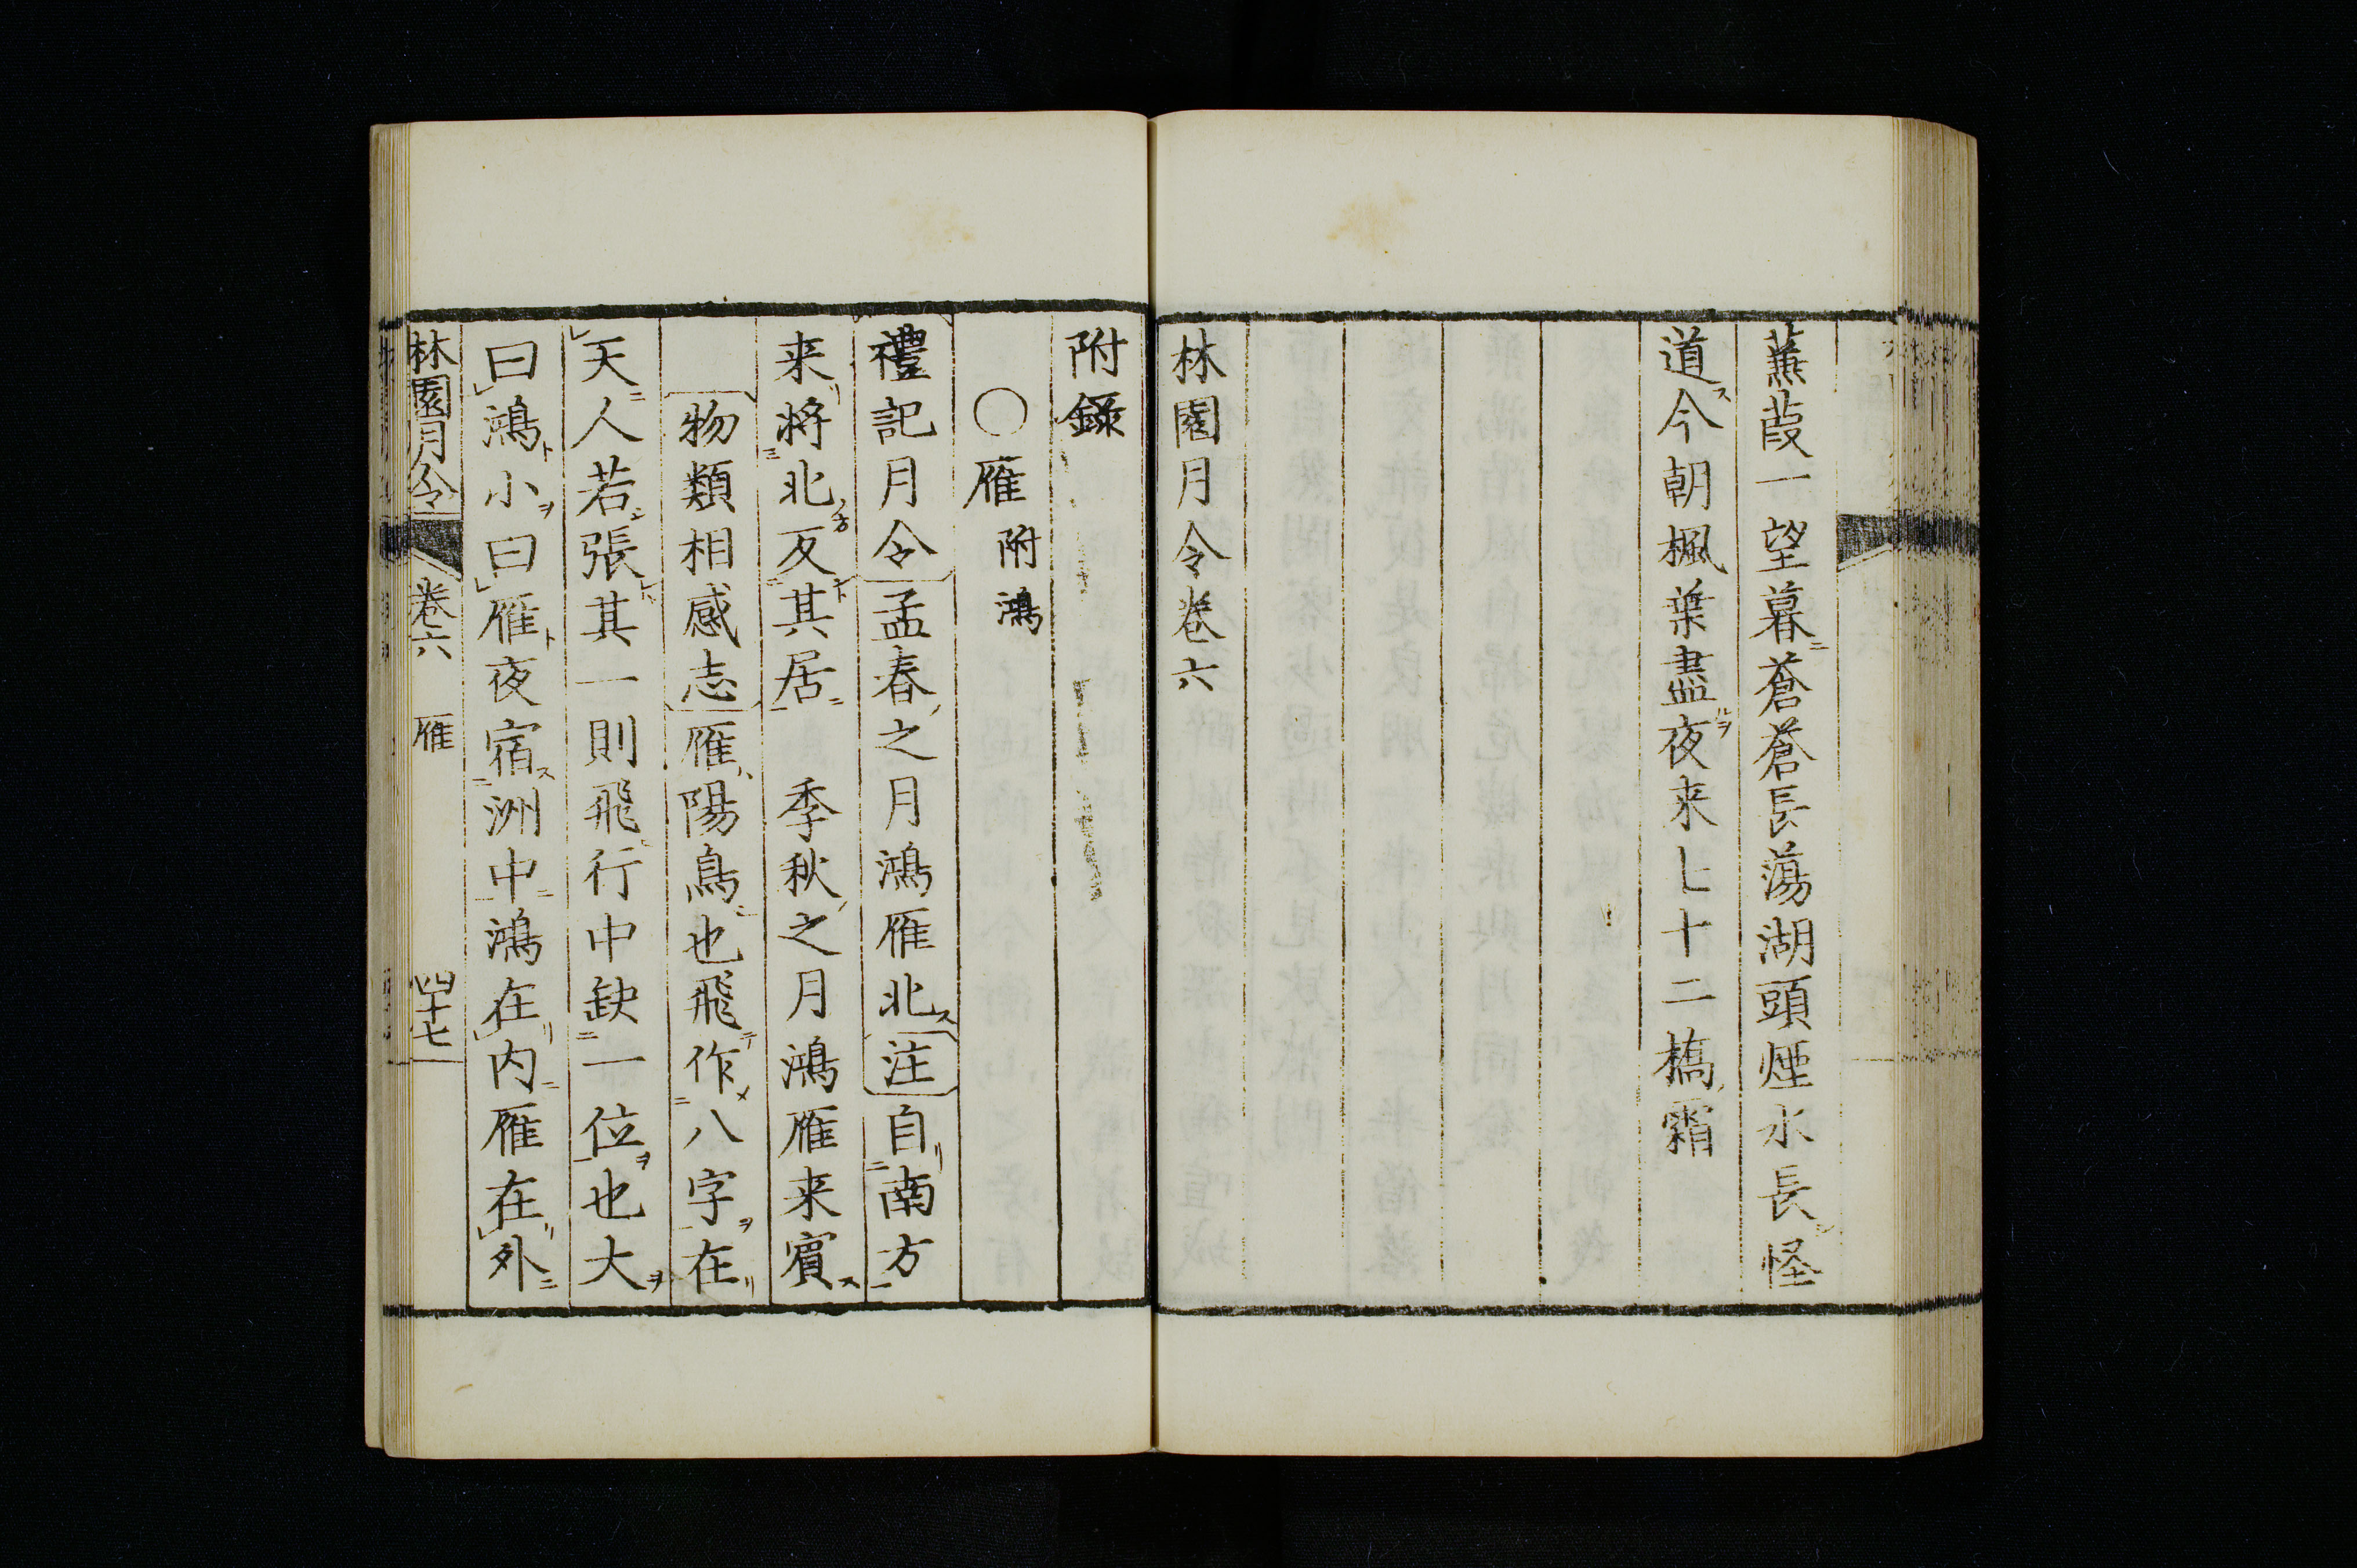 蕪葭一望暮蒼蒼長蕩湖頭煙水長怪
道今朝楓葉盡夜来七十二橋霜
林園月令卷六
附錄
〇雁附鴻
禮記月令孟春之月鴻雁北注自南方
来將北反其居　季秋之月鴻雁来賓
物類相感志雁陽鳥也飛作八字在
天人若張其一則飛行中缺一位也大
曰鴻小曰雁夜宿洲中鴻在内雁在外
林園月令　卷六　雁　四十七